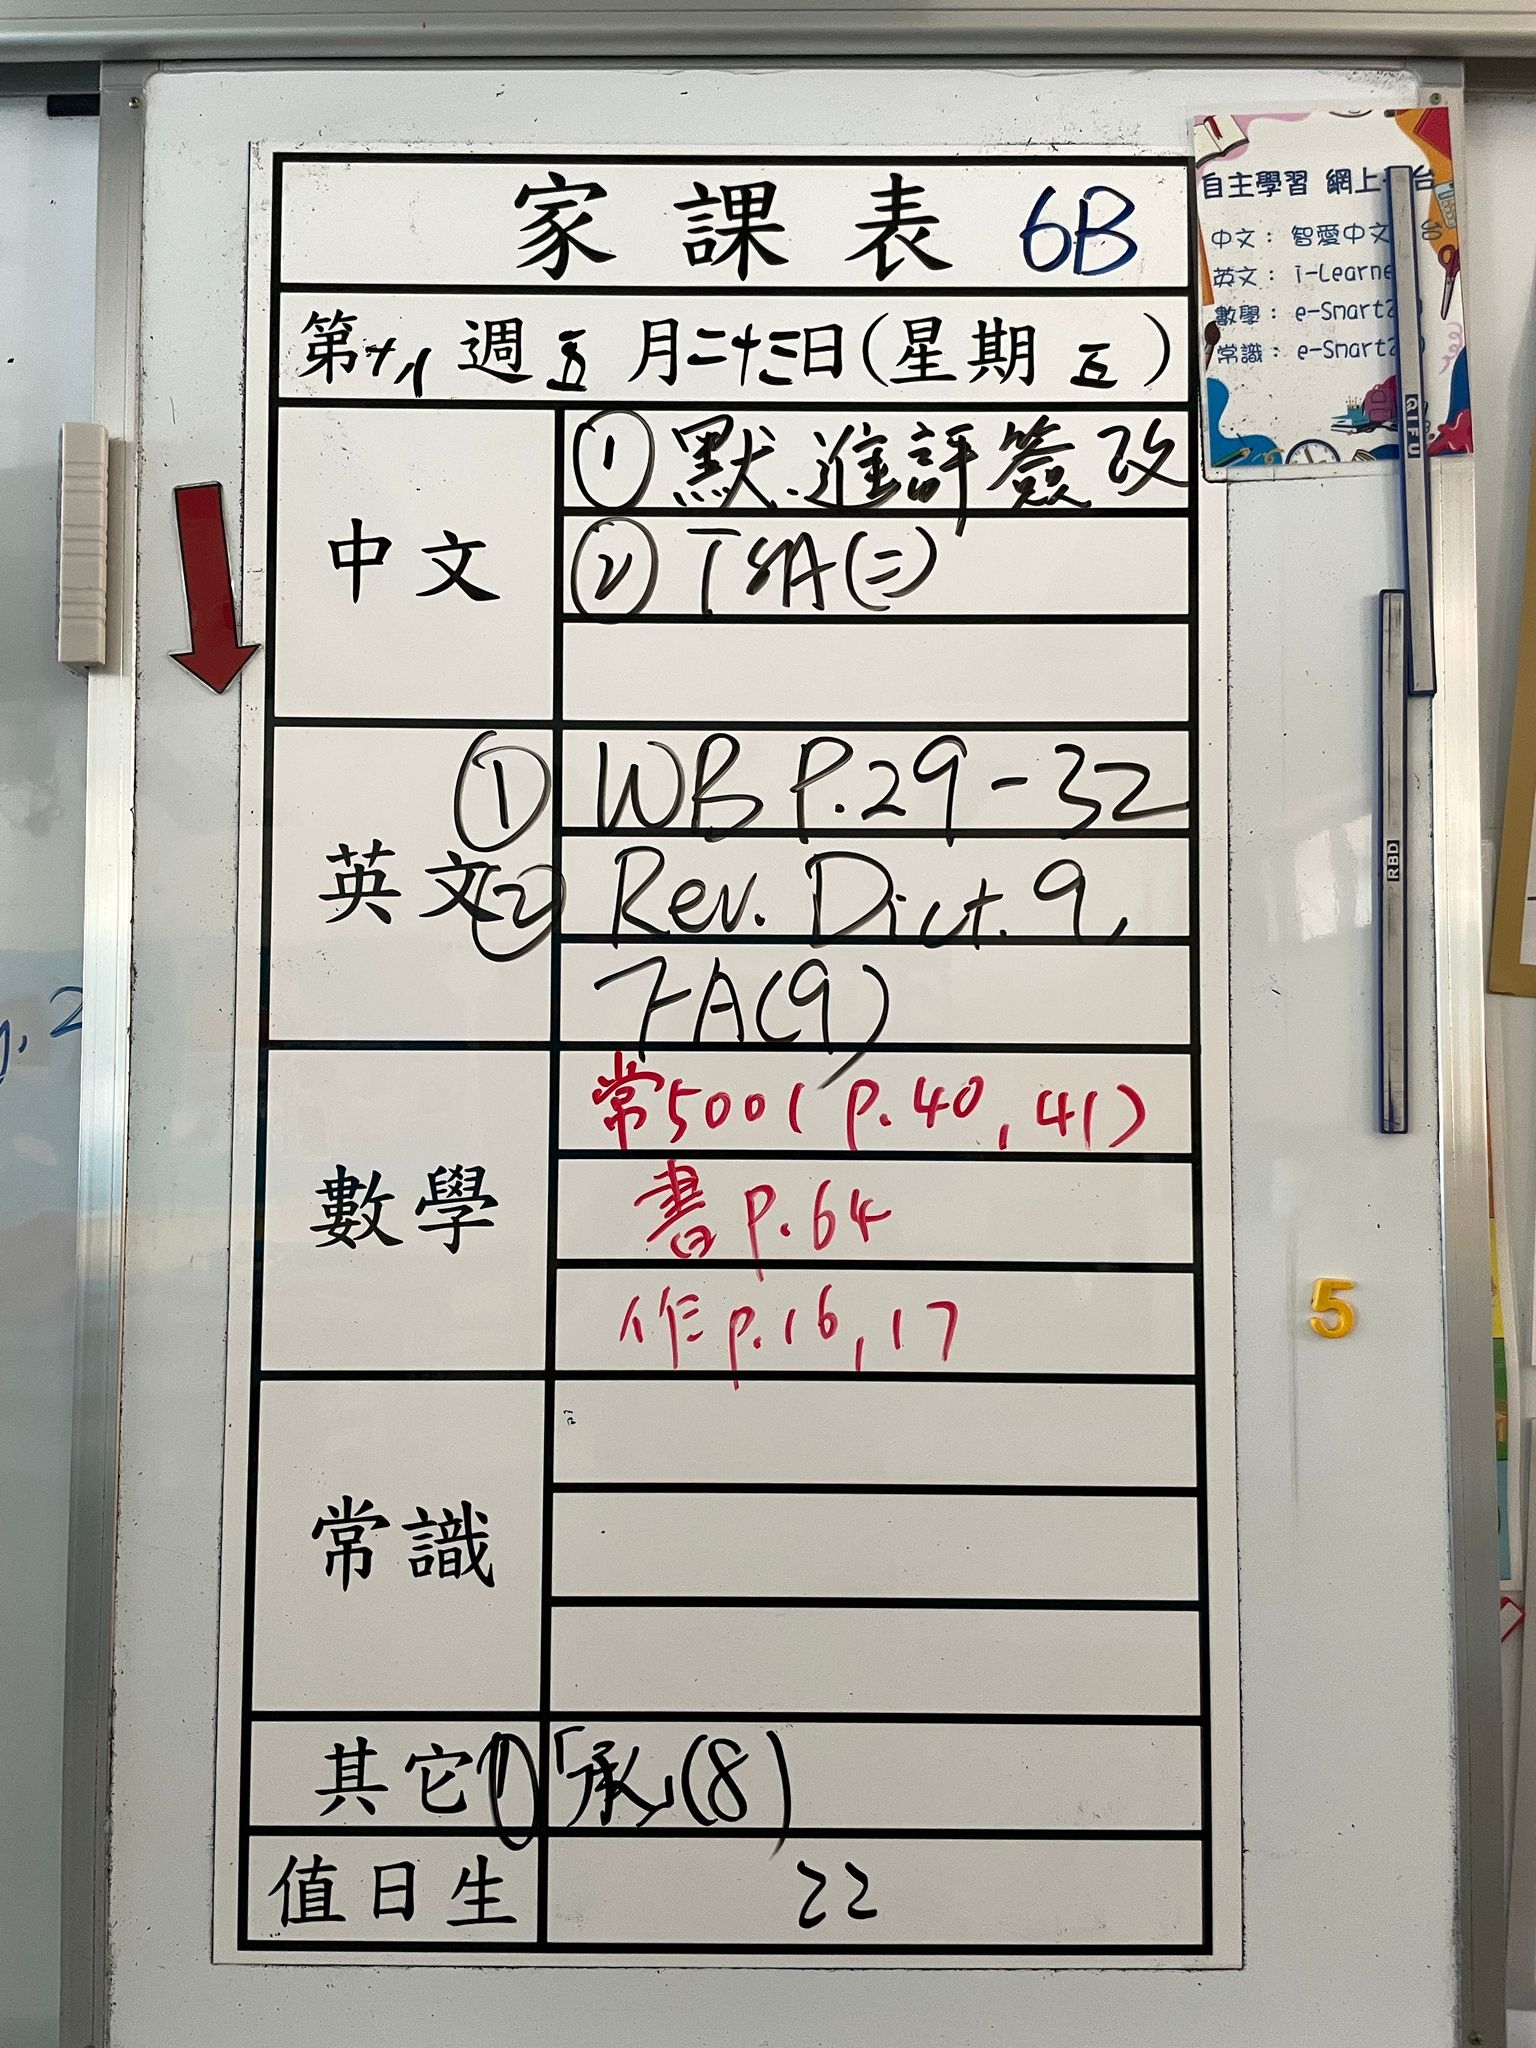 家課表 6B
第十八週 五月二十三日(星期五)
中文
① 默.進評簽改
② TSA(二)
英文
① WB P.29-32
② Rev. Dict. 9,
FA(9)
數學
常500(P.40,41)
書P.64
作P.16,17
常識
其它
①「承」(8)
值日生
22
自主學習 網上
台
中文: 智愛中文
台
英文: i-Learne
數學: e-Smart
常識: e-Smart
GIFU
RBD
5